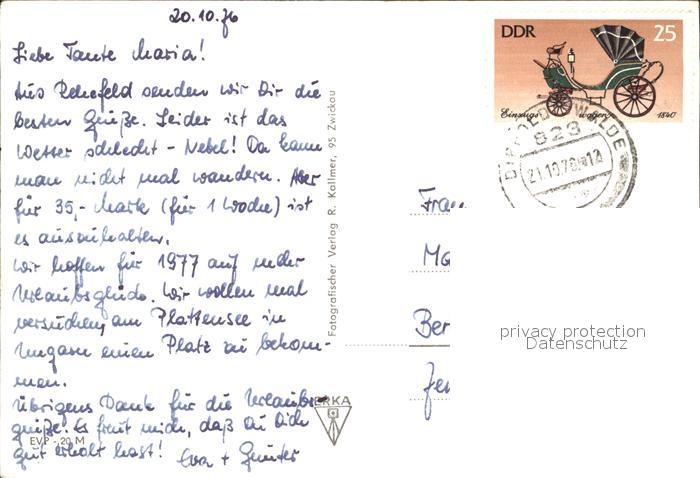 20.10.76
Liebe Tante Maria!
Aus Rehefeld senden wir Dir die
besten Grüße. Leider ist das
Wetter schlecht - Nebel! Da kann
man nicht mal wandern. Aber
für 35,- Mark (für 1 Woche) ist
es auszuhalten.
Wir hoffen für 1977 auf mehr
Urlaubsglück. Wir wollen mal
versuchen, am Plattensee in
Ungarn einen Platz zu bekom-
men.
Übrigens Dank für die Urlaubs-
grüße. Es freut mich, daß Du Dich
gut erholt hast! Eva + Günter
EVP -,20 M
Fotografischer Verlag R. Kallmer, 95 Zwickau
ERKA
DDR 25
Einzugs- wagen 1840
DIPPOLDISWALDE
823
21.10.76-12
Frau
Ma
Ber
privacy protection
Datenschutz